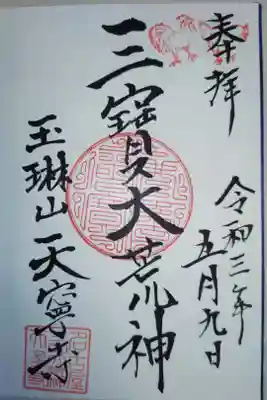 奉拝
令和三年
五月九日
三寶大荒神
玉琳山天寧寺